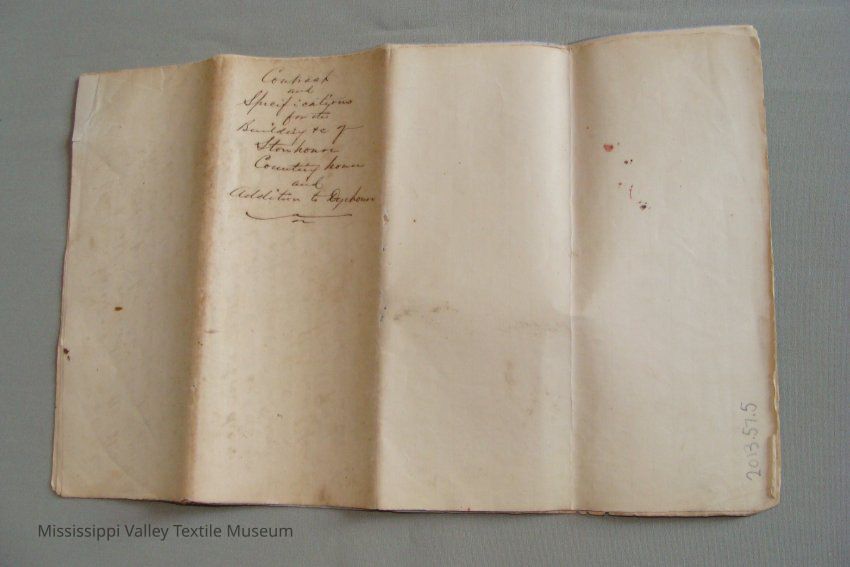 Contract
and
Specifications
for the
Building &c of
Storehouse
Counting house
and
Addition to Dyehouse
2013.57.5
Mississippi Valley Textile Museum